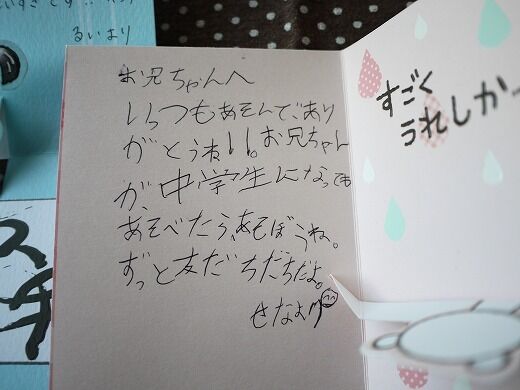 るいより
お兄ちゃんへ
いつもあそんで、あり
がとうね!!。お兄ちゃん
が、中学生になっても
あそべたら、あそぼうね。
ずっと友だちだちだよ。
せなより
すごく
うれしか